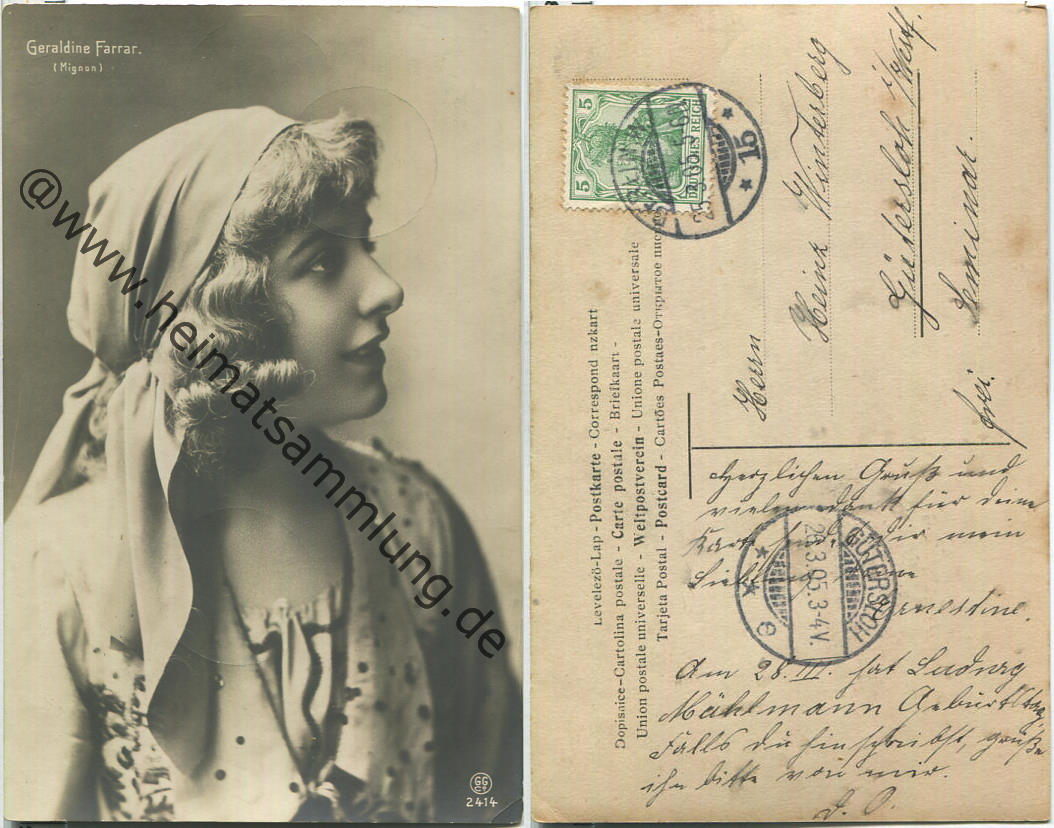 Geraldine Farrar.
(Mignon)
@www.heimatsammlung.de
GG
Co
2414
5
5
DEUTSCHES REICH
BERLIN
15
Levelezö-Lap - Postkarte - Correspond nzkart
Dopisaice-Cartolina postale - Carte postale - Briefkaart -
Union postale universelle - Weltpostverein - Unione postale universale
Tarjeta Postal - Postcard - Cartões Postaes-Открытое пис
Herrn
Heinz Winterberg
Gütersloh i/Westf.
Seminar.
frei.
Herzlichen Gruß und
vielen Dank für deine
Karte dir mein
Ernestine.
GÜTERSLOH
26.3.05.3-4V.
e
Am 28. III. hat Ludwig
Mühlmann Geburtstag,
Falls du hinschreibst, grüße
ihn bitte von mir.
D. O.